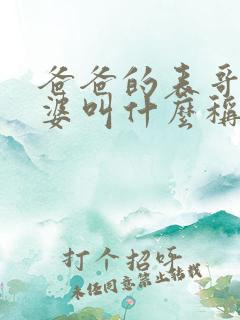 爸爸的表哥
婆叫什麼稱
打个招呼
未经同意禁止转载